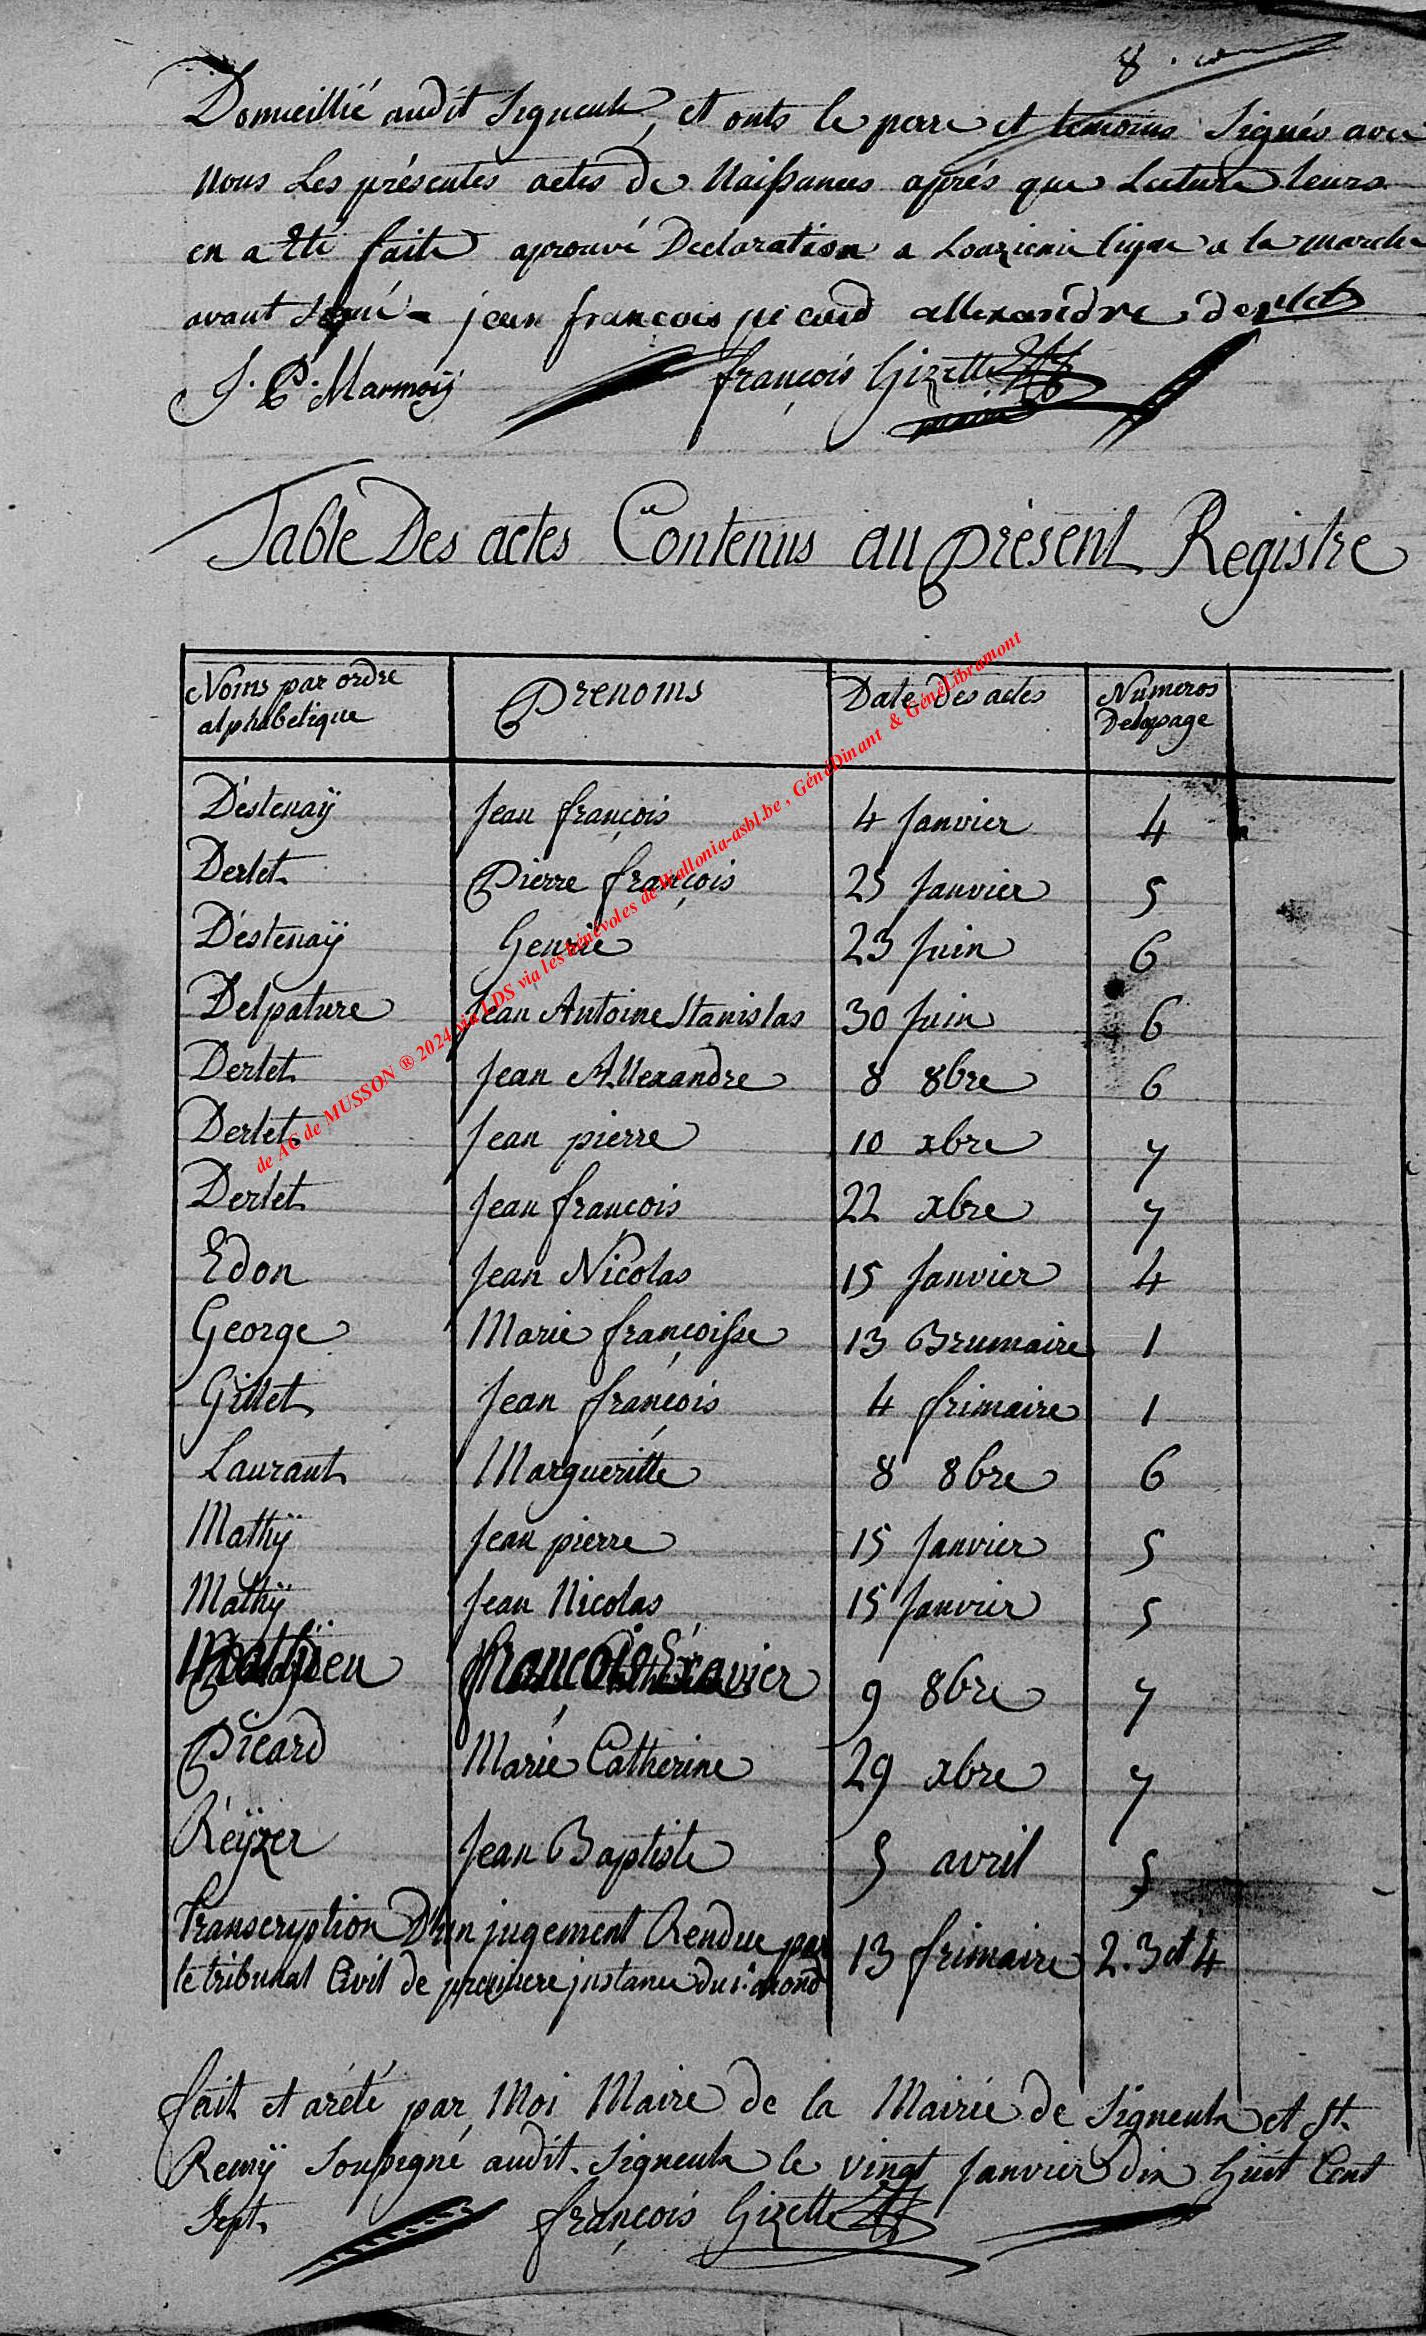 8.
Domicillié audit Signeulx, et onts le perre et temoins Signés avec
Nous Les présentes actes de Naissances aprés que Lecture leurs
en a Eté faite aprouvé Declaration a Lonzieme ligne a la marche
avant Signé - jean françois picard allexandre derlet
J. P. Marmoÿ françois Gizette
maire
Table Des actes Contenus au présent Registre
Noms par ordre alphabetique Prenoms Date Des actes Numeros De la page
Déstenaÿ Jean françois 4 Janvier 4
Derlet Pierre françois 25 Janvier 5
Déstenaÿ Henrie 23 Juin 6
Delpature Jean Antoine Stanislas 30 Juin 6
Derlet Jean Allexandre 8 8bre 6
Derlet Jean pierre 10 xbre 7
Derlet Jean françois 22 xbre 7
Edon Jean Nicolas 15 Janvier 4
George Marie françoisse 13 Brumaire 1
Gillet Jean françois 4 frimaire 1
Laurant Margueritte 8 8bre 6
Mathÿ Jean pierre 15 Janvier 5
Mathÿ Jean Nicolas 15 Janvier 5
Mathieu françois Exavier 9 8bre 7
Picard Marie Catherine 29 xbre 7
Reÿzer Jean Baptiste 5 avril 5
Transcryption D'un jugement Rendue par
le tribunal Civil de premiere instance du 13 frimaire 2. 3 et 4
fait et arété par Moi Maire de la Mairie de Signeulx et St.
Remÿ Soussigné audit Signeulx le vingt Janvier dix huit Cent
Sept. françois Gizette
de AC de MUSSON ® 2024 via LDS via les bénévoles de Wallonia-asbl.be , GénéDinant & GénéLibramont